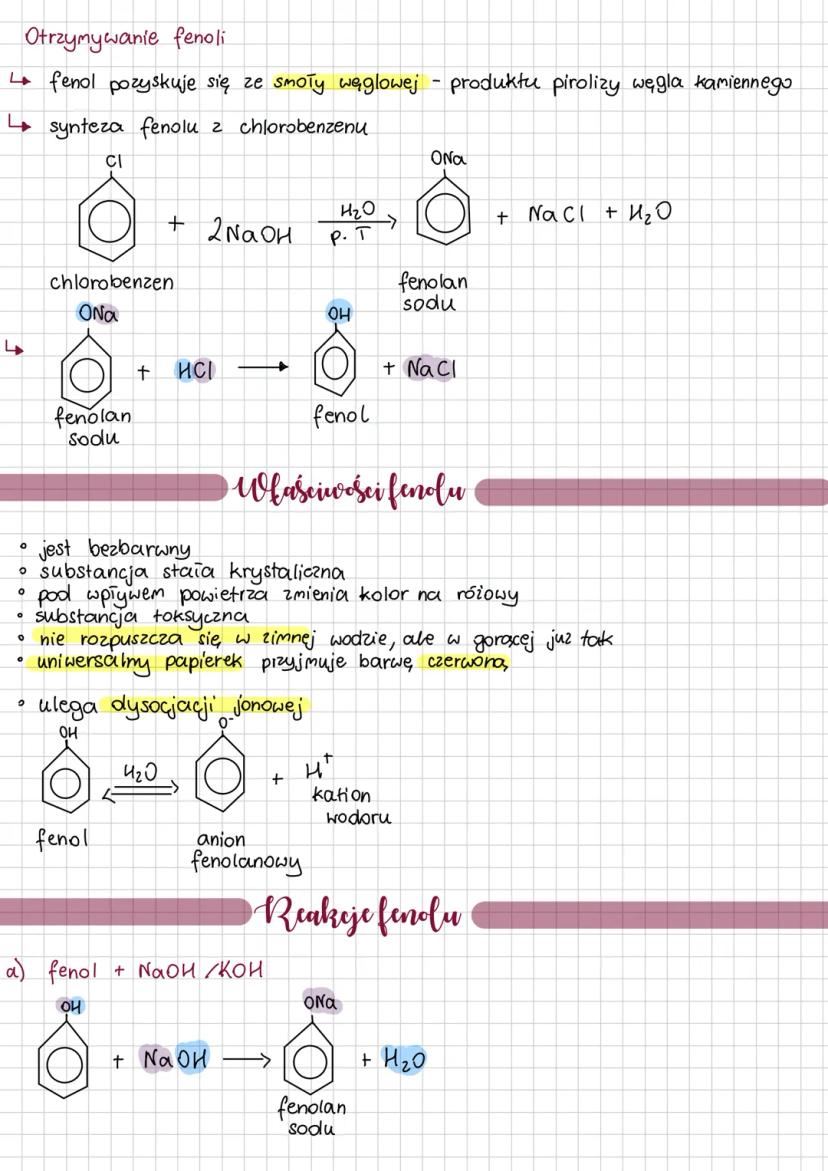 Otrzymywanie fenoli
↳ fenol pozyskuje się ze smoły węglowej - produktu pirolizy węgla kamiennego
↳ synteza fenolu z chlorobenzenu
Cl
ONa
+ 2NaOH H₂O p. T → + NaCl + H₂O
chlorobenzen
fenolan
sodu
↳ ONa
OH
+ HCl → + NaCl
fenolan
sodu
fenol
Właściwości fenolu
• jest bezbarwny
• substancja stała krystaliczna
• pod wpływem powietrza zmienia kolor na różowy
• substancja toksyczna
• nie rozpuszcza się w zimnej wodzie, ale w gorącej już tak
• uniwersalny papierek przyjmuje barwę czerwoną
• ulega dysocjacji jonowej
OH
O⁻
H₂O ⇌ + H⁺
kation
wodoru
fenol
anion
fenolanowy
Reakcje fenolu
a) fenol + NaOH /KOH
OH
ONa
+ NaOH → + H₂O
fenolan
sodu